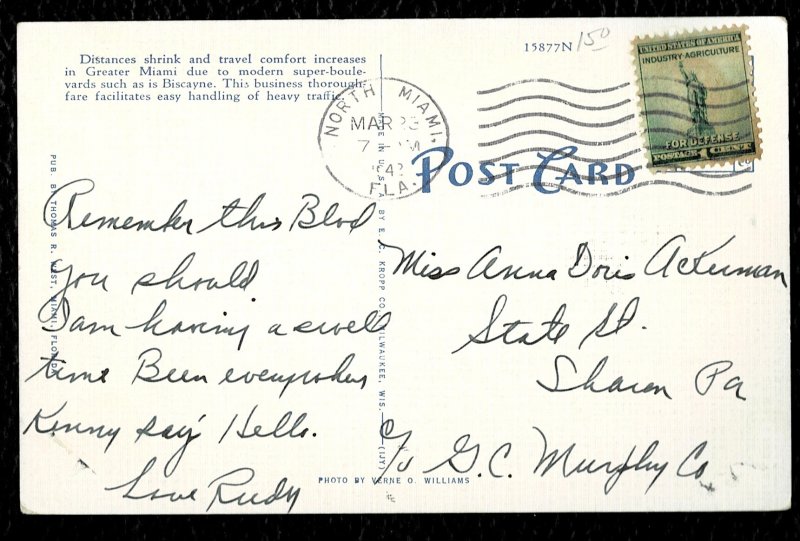 Distances shrink and travel comfort increases
in Greater Miami due to modern super-boule-
vards such as is Biscayne. This business thorough-
fare facilitates easy handling of heavy traffic.
15877N
150
UNITED STATES OF AMERICA
INDUSTRY·AGRICULTURE
FOR DEFENSE
POSTAGE 1 CENT
NORTH MIAMI,
MAR 23
7 PM
FLA.
POST CARD
PUB. BY THOMAS R. WEST, MIAMI, FLORIDA
MADE IN U. S. A. BY E. C. KROPP CO. MILWAUKEE, WIS.
(IJY)
Remember this Blvd
you should
I am having a swell
time Been everywhere
Kenny say Hello.
Love Rudy
Miss Anna Doris Ackerman
State St.
Sharon Pa
c/o G.C. Murphy Co
PHOTO BY VERNE O. WILLIAMS